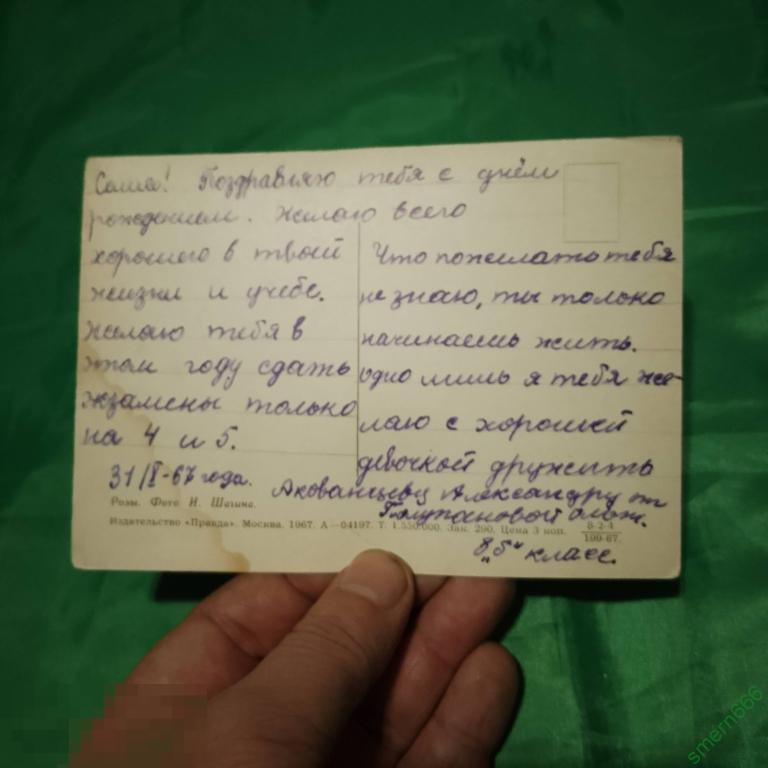 Саша! Поздравляю тебя с днём
рождением. Желаю всего
хорошего в твоей
жизни и учебе.
Желаю тебя в
этом году сдать
экзамены только
на 4 и 5.
31/I-67 года.
Что пожелать тебя
не знаю, ты только
начинаешь жить.
Одно лишь я тебя же-
лаю с хорошей
девочкой дружить
Александру от
8 "Б" класс.
Розы. Фото И. Шагина.
Издательство «Правда». Москва. 1967. А—04197. Т. 1.550.000. Зак. 290. Цена 3 коп.
8-2-4
199-67.
smern666